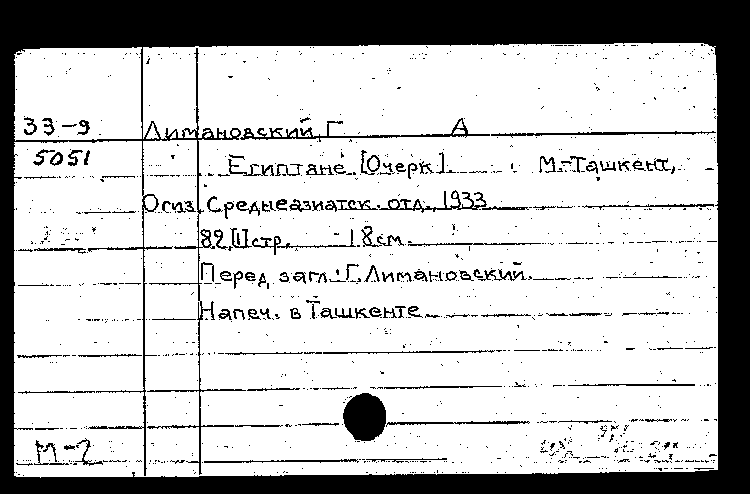 33-9 Лимановский, Г А
5051 Египтяне [Очерк]. М.-Ташкент,
Огиз. Среднеазиатск. отд., 1933
82,[1] стр. 18 см.
Перед загл.: Г. Лимановский.
Напеч. в Ташкенте
М-2